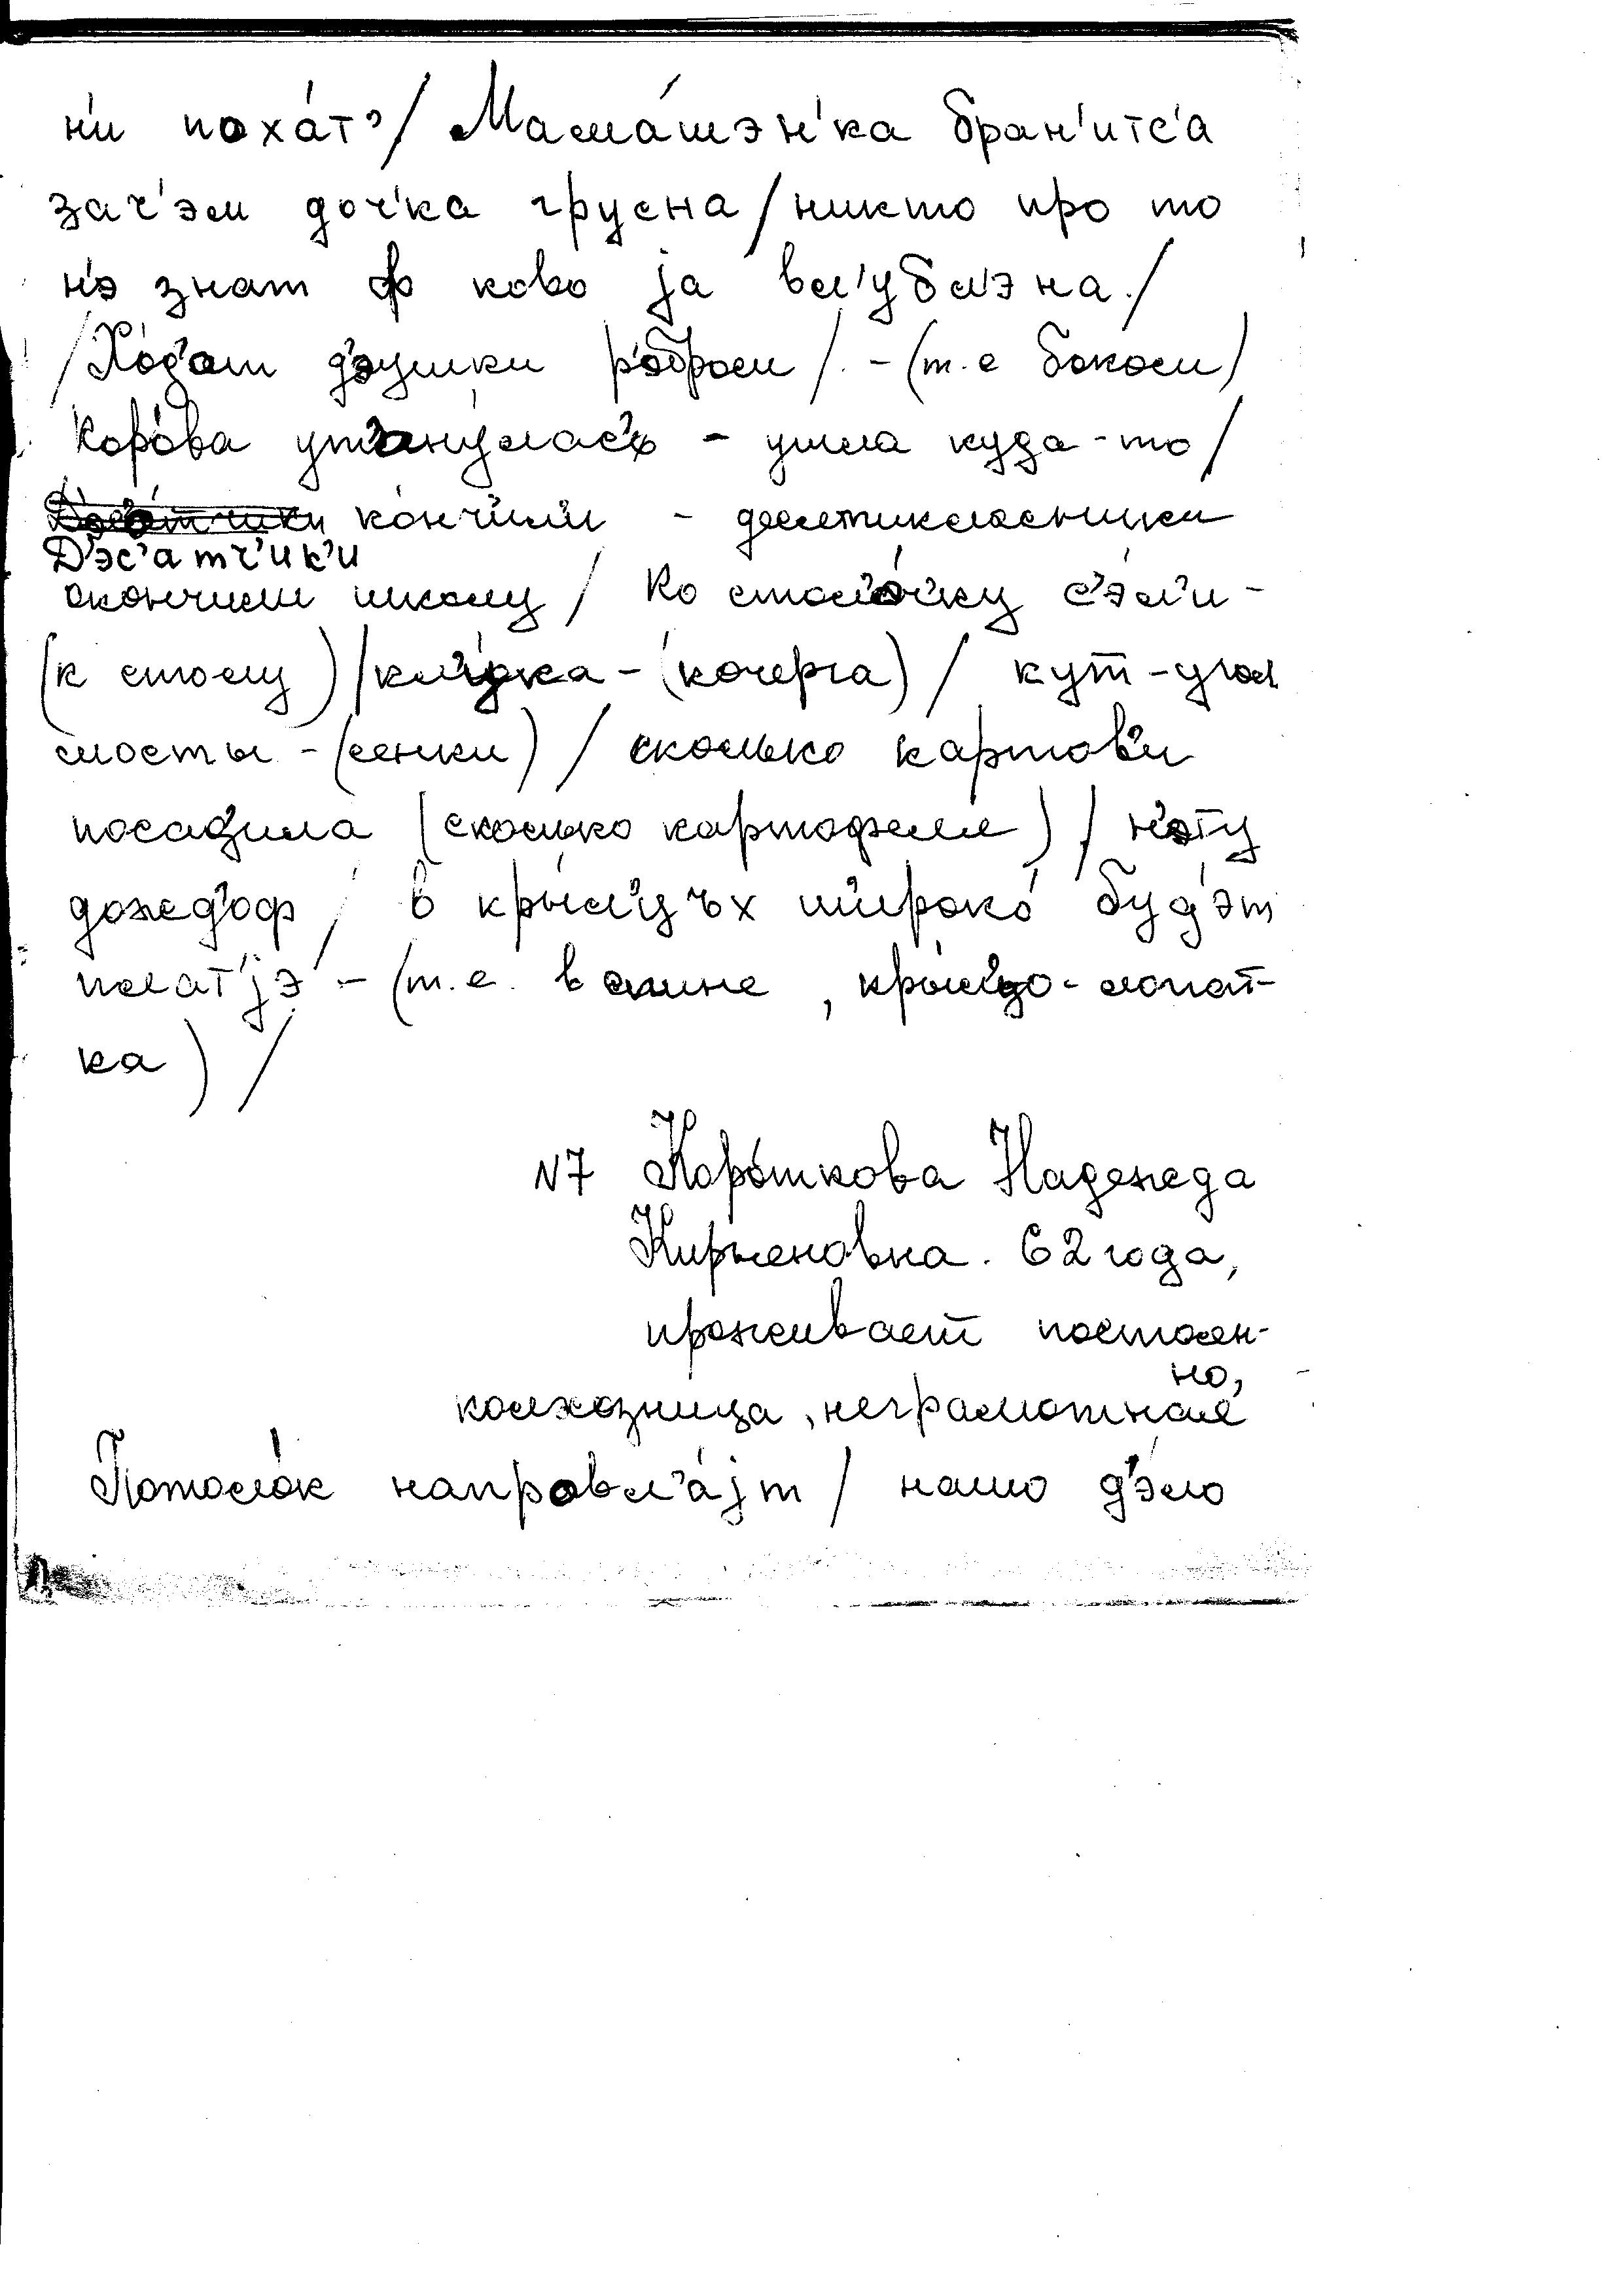 н'и поха́т'/ Мама́шэн'ка бран'итс'а
зач'эм доч'ка грусна/никто про то
н'э знат ф ково ja вл'убл'эна./
/Хо́д'ат д'эушки р'обром/. - (т.е боком)
Коро́ва ут'ану́лас'ь - ушла куда-то/
ко́нчил'и - десятиклассники
Д'эс'атч'ик'и
окончили школу / Ко стол'о́чку с'э́л'и -
(к столу)/кл'у́ка-(кочерга)/ кут-угол
мосты -(сенки) / сколько картов'и
посадила (сколько картофеля) / н'э́ту
дожд'оф / в кры́л'цъх шыроко́ буд'эт
плат'jэ - (т.е. в спине, крыл'цо-лопат-
ка) /
N7 Коро́ткова Надежда
Кирьяновна. 62 года,
проживает постоян-
но,
колхозница, неграмотная
Потоло́к напровл'а́jт / нашо д'э́ло